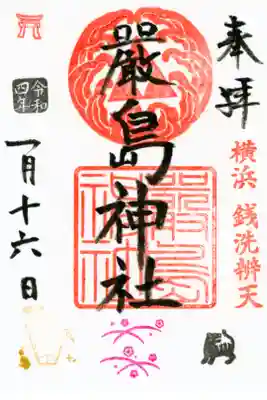 奉拝
横浜 銭洗辨天
嚴島神社
嚴島神社
令和四年
一月十六日